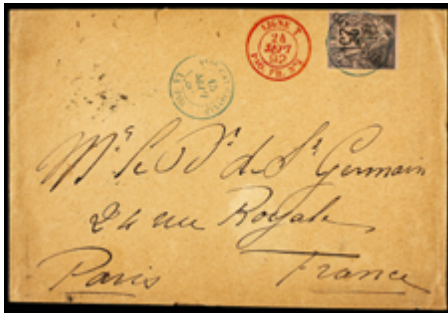 LIGNE T
24
SEPT
92
PAQ. FR. Nº4
Mr. le Dr. de St. Germain
24 rue Royale
Paris France